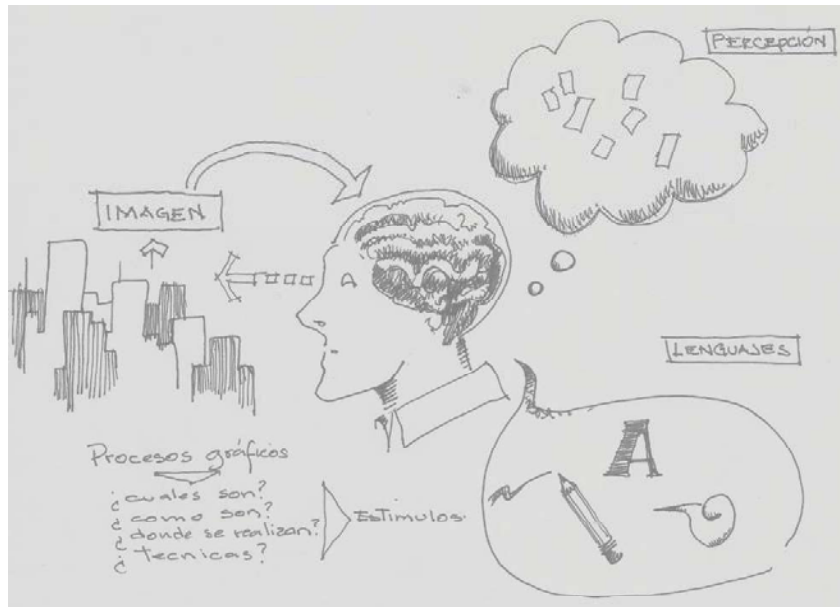 PERCEPCIÓN
IMAGEN
A
LENGUAJES
A
Procesos gráficos
¿cuales son?
¿como son?
¿donde se realizan?
¿tecnicas?
¿
Estimulos